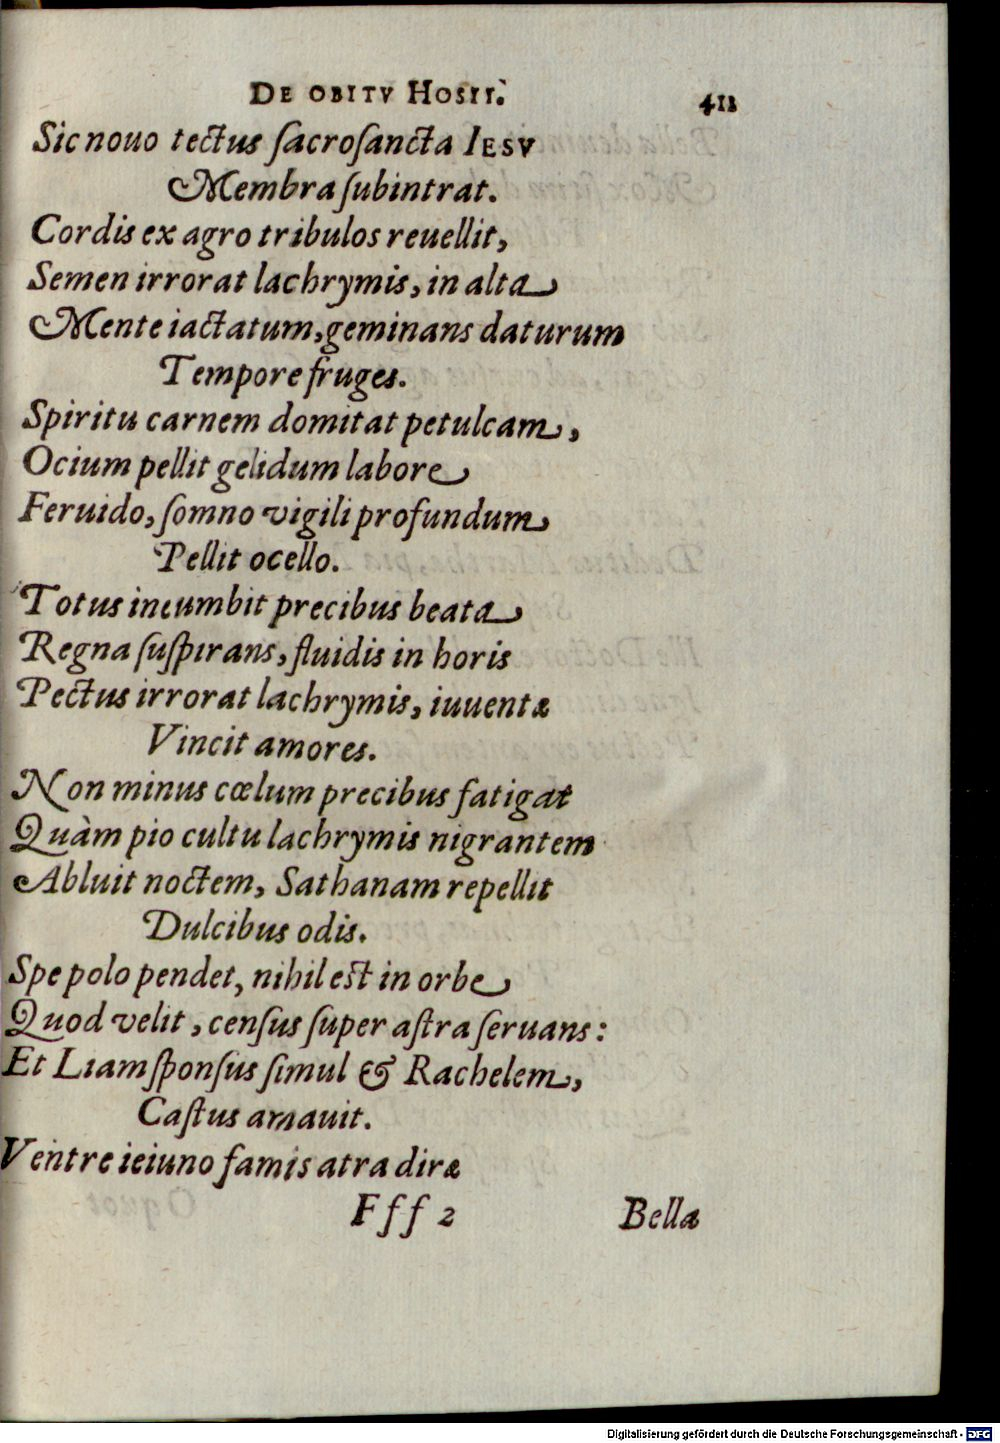 DE OBITV HOSII. 411
Sic nouo tectus sacrosancta IESV
Membra subintrat.
Cordis ex agro tribulos reuellit,
Semen irrorat lachrymis, in alta
Mente iactatum, geminans daturum
Tempore fruges.
Spiritu carnem domitat petulcam,
Ocium pellit gelidum labore
Feruido, somno vigili profundum
Pellit ocello.
Totus incumbit precibus beata
Regna suspirans, fluidis in horis
Pectus irrorat lachrymis, iuuentæ
Vincit amores.
Non minus cœlum precibus fatigat
Quàm pio cultu lachrymis nigrantem
Abluit noctem, Sathanam repellit
Dulcibus odis.
Spe polo pendet, nihil est in orbe
Quod velit, census super astra seruans:
Et Liam sponsus simul & Rachelem,
Castus amauit.
Ventre ieiuno famis atra diræ
Fff 2 Bella
Digitalisierung gefördert durch die Deutsche Forschungsgemeinschaft - DFG